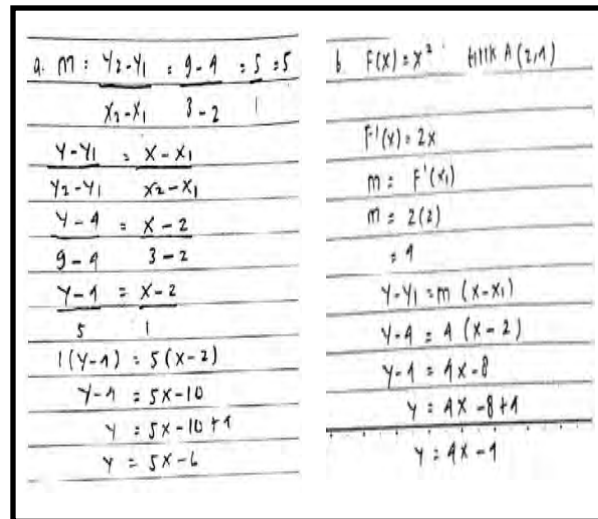 a. m = y2-y1 = 9-4 = 5 = 5
x2-x1 3-2 1
y-y1 = x-x1
y2-y1 x2-x1
y-4 = x-2
9-4 3-2
y-4 = x-2
5 1
1(y-4) = 5(x-2)
y-4 = 5x-10
y = 5x-10+4
y = 5x-6
b. F(x) = x² titik A(2,4)
F'(x) = 2x
m = F'(x1)
m = 2(2)
= 4
y-y1 = m (x-x1)
y-4 = 4 (x-2)
y-4 = 4x-8
y = 4x-8+4
y = 4x-4